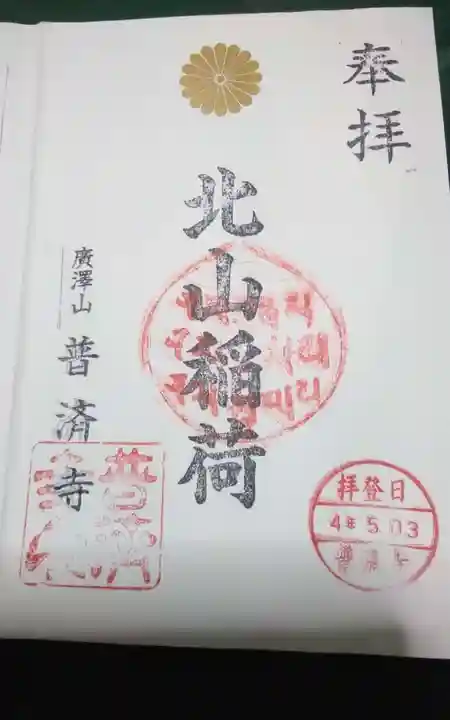 奉拝
北山稲荷
廣澤山 普済寺
拝登日
4年5.03